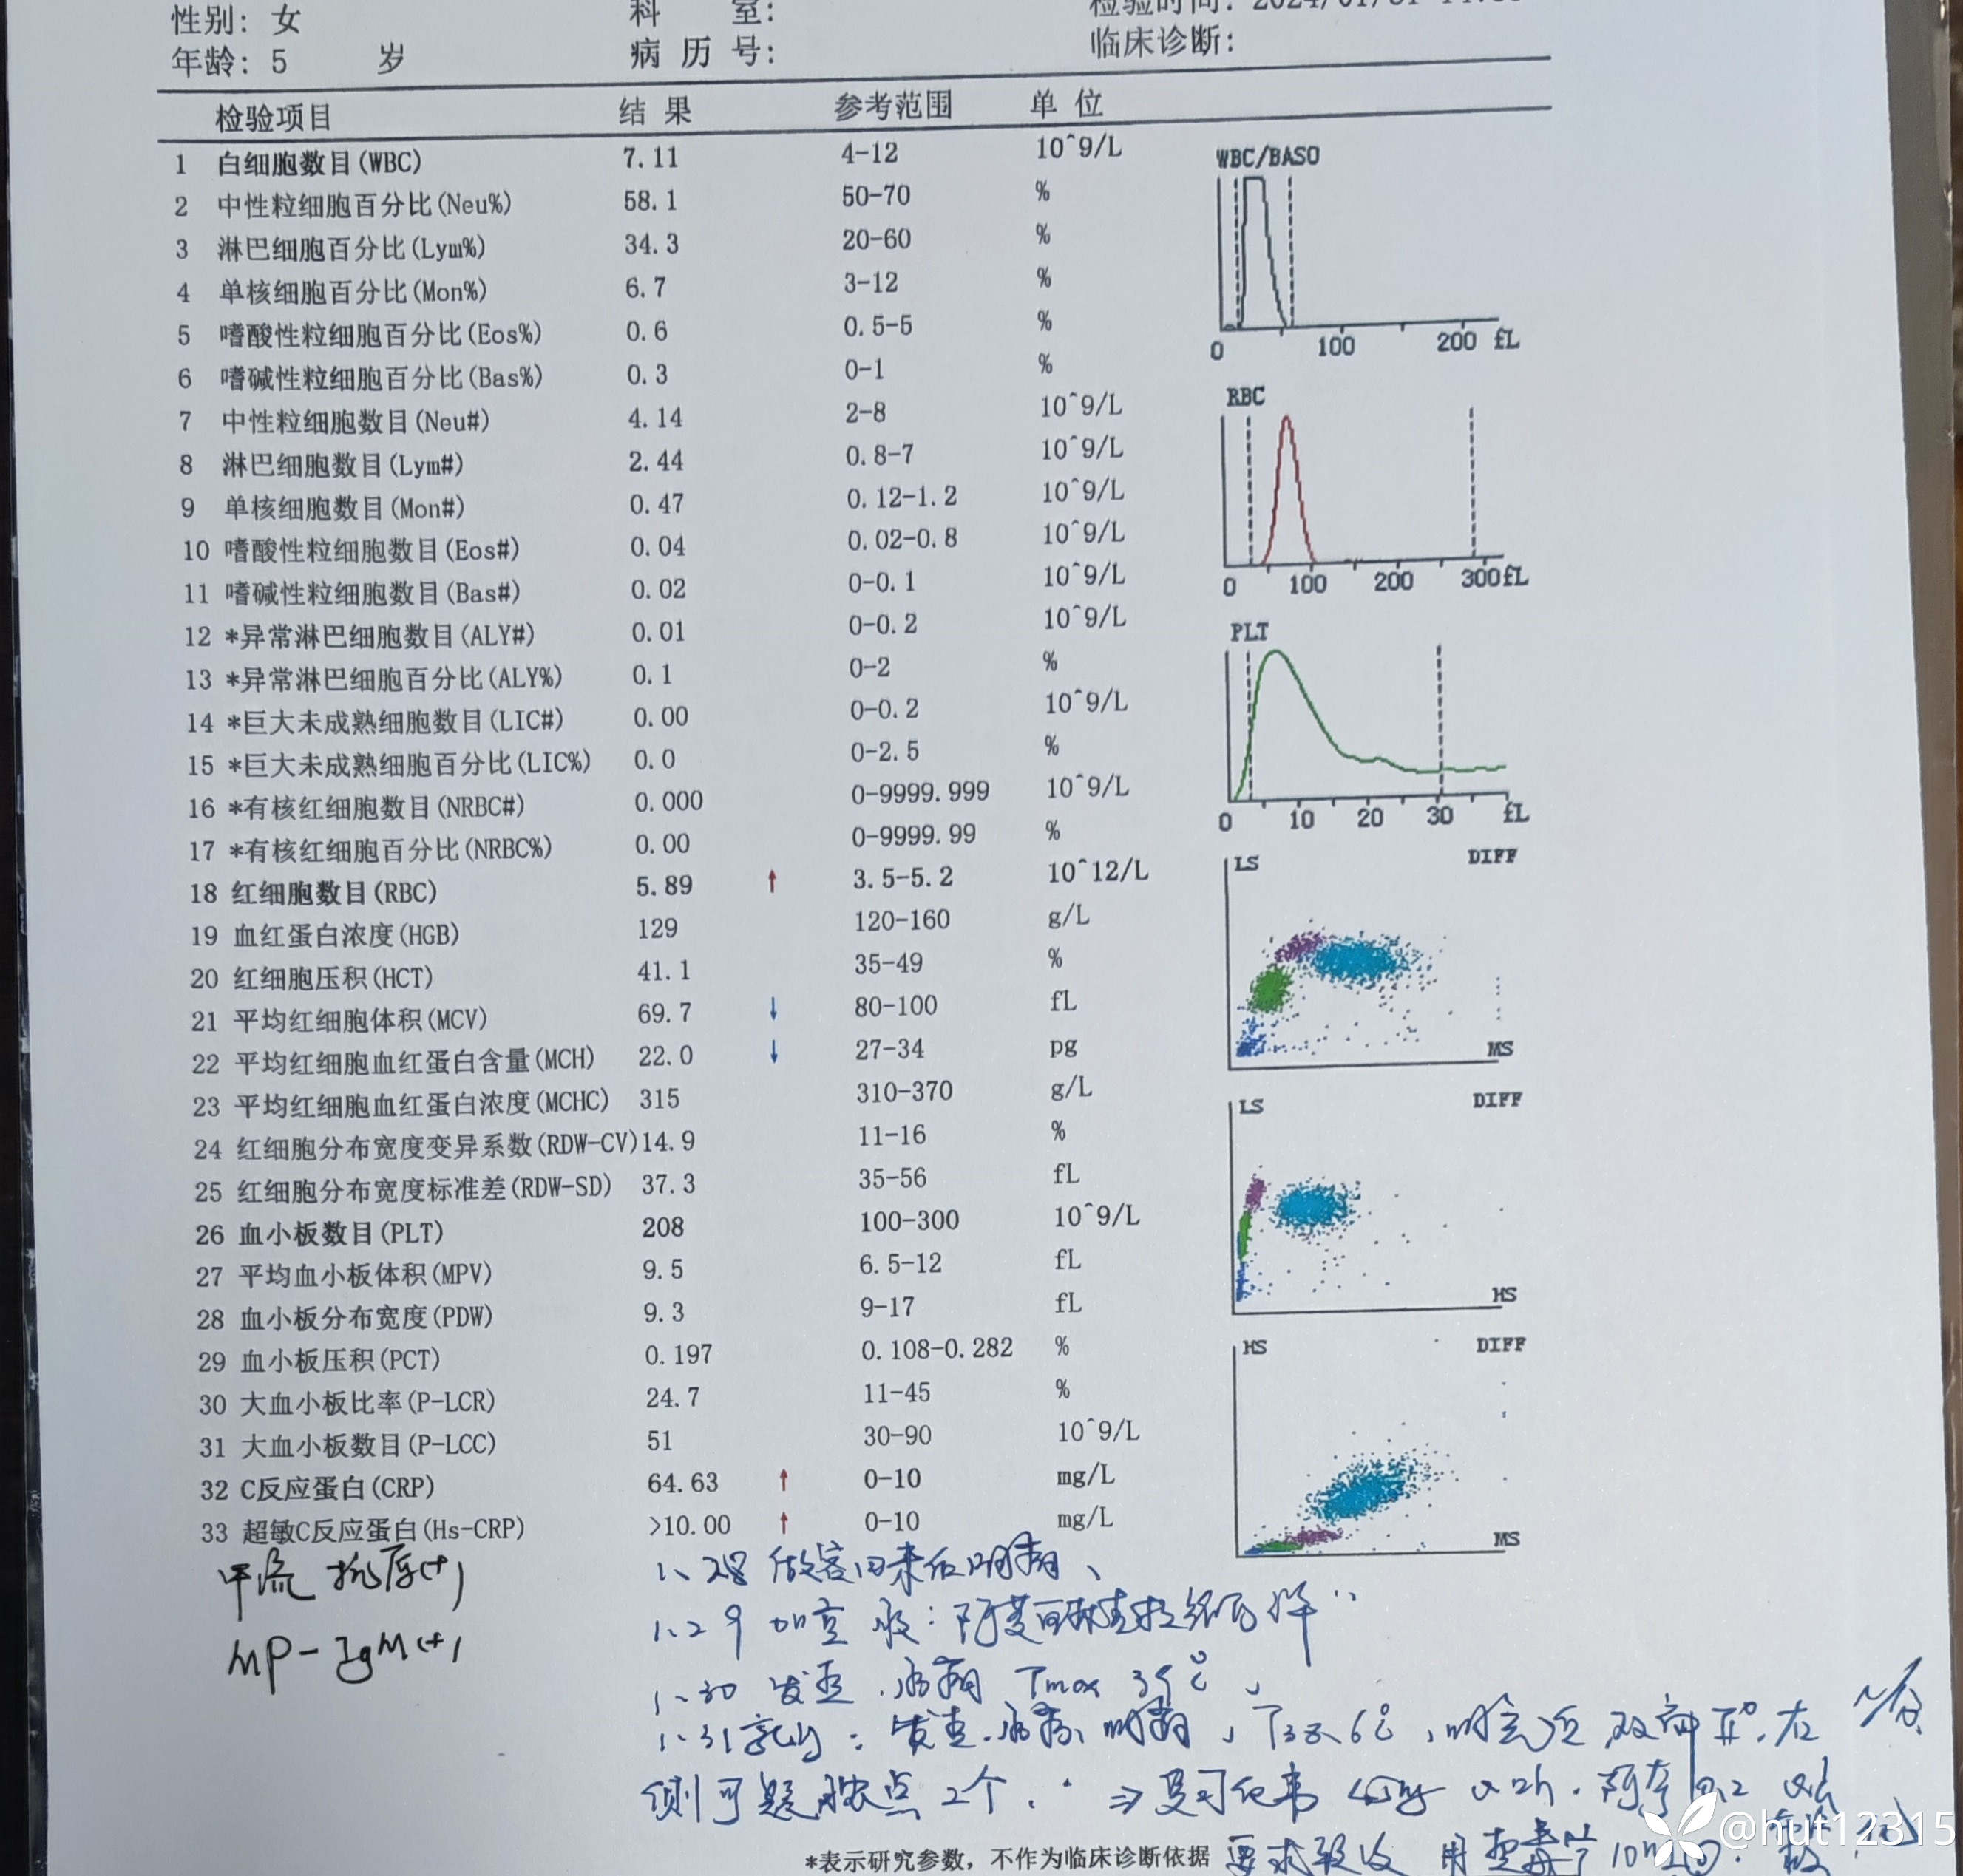 性别: 女 科 室: 检验时间: 2024/01/31
年龄: 5 岁 病 历 号: 临床诊断:
检验项目 结 果 参考范围 单 位
1 白细胞数目(WBC) 7.11 4-12 10^9/L
2 中性粒细胞百分比(Neu%) 58.1 50-70 %
3 淋巴细胞百分比(Lym%) 34.3 20-60 %
4 单核细胞百分比(Mon%) 6.7 3-12 %
5 嗜酸性粒细胞百分比(Eos%) 0.6 0.5-5 %
6 嗜碱性粒细胞百分比(Bas%) 0.3 0-1 %
7 中性粒细胞数目(Neu#) 4.14 2-8 10^9/L
8 淋巴细胞数目(Lym#) 2.44 0.8-7 10^9/L
9 单核细胞数目(Mon#) 0.47 0.12-1.2 10^9/L
10 嗜酸性粒细胞数目(Eos#) 0.04 0.02-0.8 10^9/L
11 嗜碱性粒细胞数目(Bas#) 0.02 0-0.1 10^9/L
12 *异常淋巴细胞数目(ALY#) 0.01 0-0.2 10^9/L
13 *异常淋巴细胞百分比(ALY%) 0.1 0-2 %
14 *巨大未成熟细胞数目(LIC#) 0.00 0-0.2 10^9/L
15 *巨大未成熟细胞百分比(LIC%) 0.0 0-2.5 %
16 *有核红细胞数目(NRBC#) 0.000 0-9999.999 10^9/L
17 *有核红细胞百分比(NRBC%) 0.00 0-9999.99 %
18 红细胞数目(RBC) 5.89 ↑ 3.5-5.2 10^12/L
19 血红蛋白浓度(HGB) 129 120-160 g/L
20 红细胞压积(HCT) 41.1 35-49 %
21 平均红细胞体积(MCV) 69.7 ↓ 80-100 fL
22 平均红细胞血红蛋白含量(MCH) 22.0 ↓ 27-34 pg
23 平均红细胞血红蛋白浓度(MCHC) 315 310-370 g/L
24 红细胞分布宽度变异系数(RDW-CV) 14.9 11-16 %
25 红细胞分布宽度标准差(RDW-SD) 37.3 35-56 fL
26 血小板数目(PLT) 208 100-300 10^9/L
27 平均血小板体积(MPV) 9.5 6.5-12 fL
28 血小板分布宽度(PDW) 9.3 9-17 fL
29 血小板压积(PCT) 0.197 0.108-0.282 %
30 大血小板比率(P-LCR) 24.7 11-45 %
31 大血小板数目(P-LCC) 51 30-90 10^9/L
32 C反应蛋白(CRP) 64.63 ↑ 0-10 mg/L
33 超敏C反应蛋白(Hs-CRP) >10.00 ↑ 0-10 mg/L
WBC/BASO
0 100 200 fL
RBC
0 100 200 300fL
PLT
0 10 20 30 fL
LS DIFF
MS
LS DIFF
HS
HS DIFF
MS
甲流 抗原(+)
MP-IgM(+)
1.28 做客回来后咽痛、
1.29
1.30 发热 . Tmax 39℃
1.31 : 发热. 咽痛, 双扁Ⅱ°. 右
侧可疑脓点2个.
要求
*表示研究参数, 不作为临床诊断依据
@hut12315